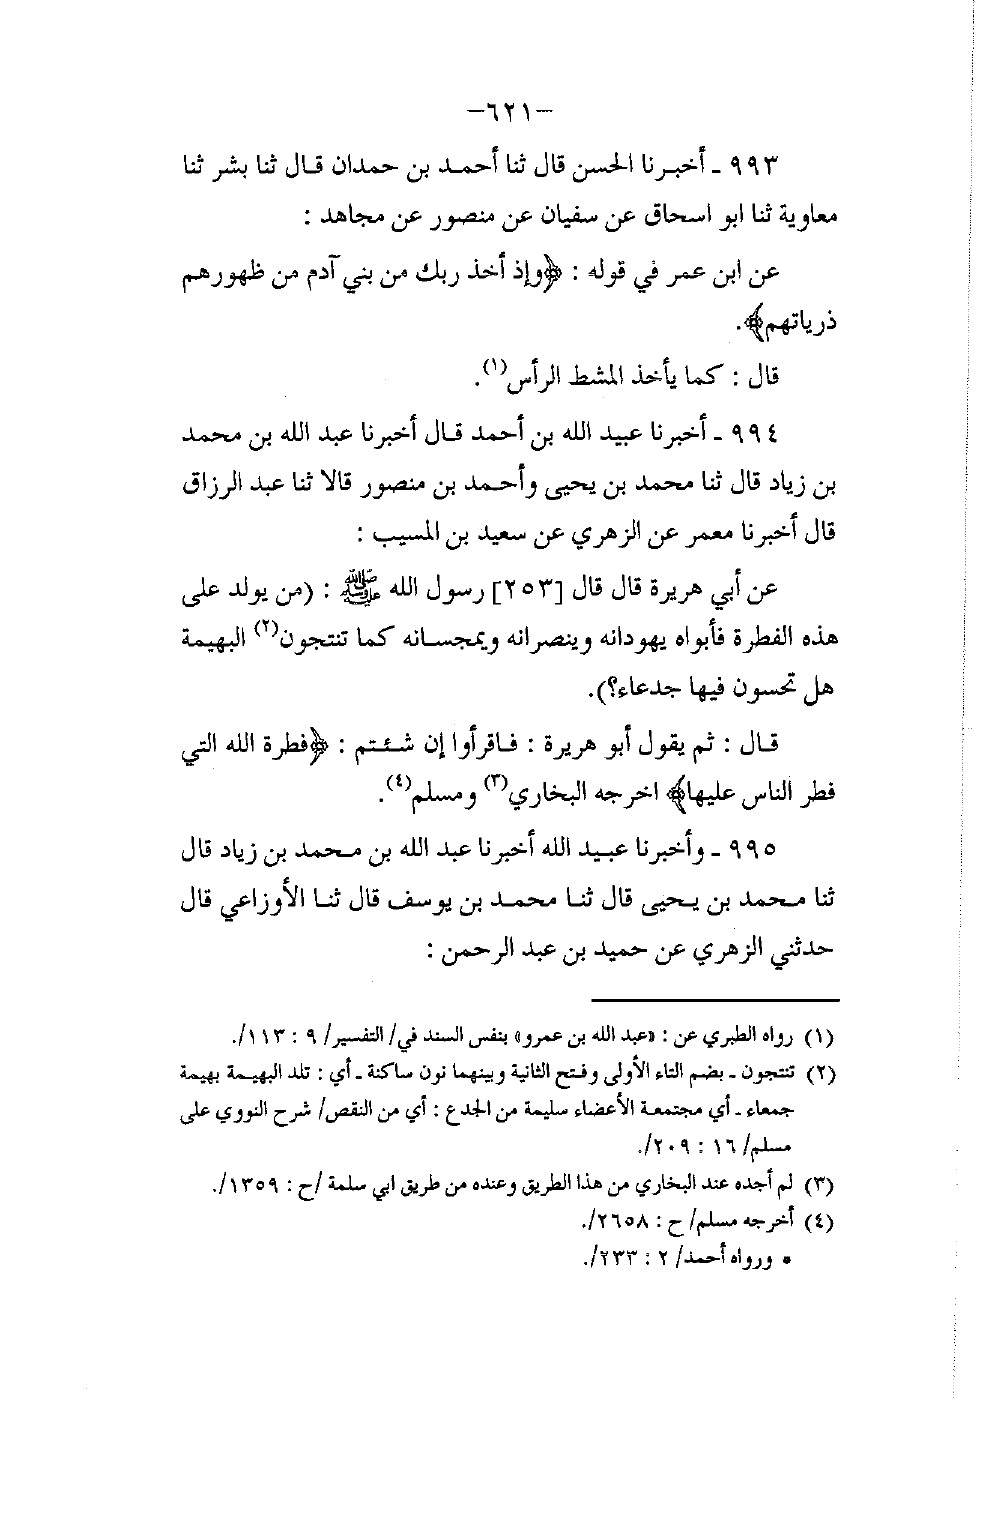 –٦٢١–
٩٩٣ ـ أخبـرنا الحسن قال ثنا أحمـد بن حمدان قـال ثنا بشر ثنا
معاوية ثنا ابو اسحاق عن سفيان عن منصور عن مجاهد :
عن ابن عمر في قوله : ﴿وإذ أخذ ربك من بني آدم من ظهورهم
ذرياتهم﴾.
قال : كما يأخذ المشط الرأس(١).
٩٩٤ ـ أخبرنا عبيد الله بن أحمد قـال أخبرنا عبد الله بن محمد
بن زياد قال ثنا محمد بن يحيى وأحـمد بن منصور قالا ثنا عبد الرزاق
قال أخبرنا معمر عن الزهري عن سعيد بن المسيب :
عن أبي هريرة قال قال [٢٥٣] رسول الله ﷺ : (من يولد على
هذه الفطرة فأبواه يهودانه وينصرانه ويمجسـانه كما تنتجون(٢) البهيمة
هل تحسون فيها جدعاء؟).
قـال : ثم يقول أبو هريرة : فـاقرأوا إن شـئـتم : ﴿فطرة الله التي
فطر الناس عليها﴾ اخرجه البخاري(٣) ومسلم(٤).
٩٩٥ ـ وأخبرنا عبـيد الله أخبرنا عبد الله بن مـحمد بن زياد قال
ثنا مـحمد بن يـحيى قال ثنـا محمـد بن يوسف قال ثنـا الأوزاعي قال
حدثني الزهري عن حميد بن عبد الرحمن :
(١) رواه الطبري عن : «عبد الله بن عمرو» بنفس السند في/ التفسير/ ٩ : ١١٣/.
(٢) تنتجون ـ بضم التاء الأولى وفتح الثانية وبينهما نون ساكنة ـ أي : تلد البهيمة بهيمة
جمعاء ـ أي مجتمعة الأعضاء سليمة من الجدع : أي من النقص/ شرح النووي على
مسلم/ ١٦ : ٢٠٩/.
(٣) لم أجده عند البخاري من هذا الطريق وعنده من طريق ابي سلمة /ح : ١٣٥٩/.
(٤) أخرجه مسلم/ ح : ٢٦٥٨/.
• ورواه أحمد/ ٢ : ٢٣٣/.